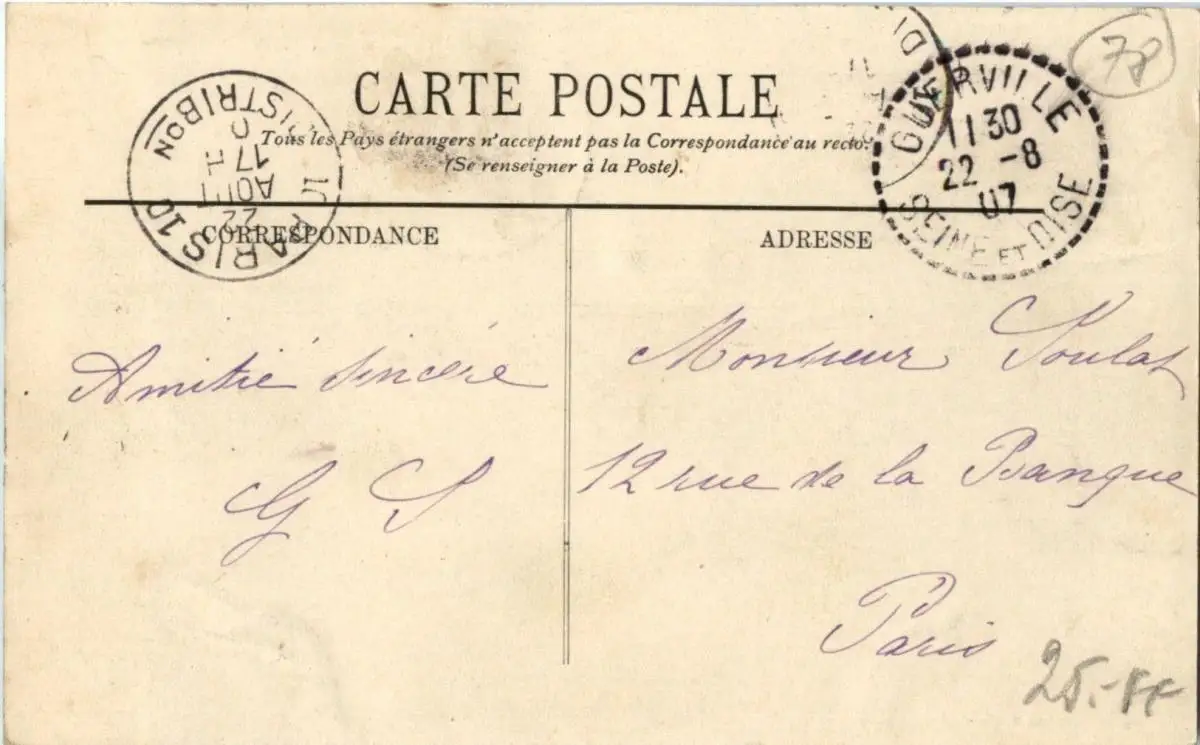 CARTE POSTALE
Tous les Pays étrangers n'acceptent pas la Correspondance au recto.
(Se renseigner à la Poste).
CORRESPONDANCE
ADRESSE
78
GUERVILLE
11 30
22 -8
07
SEINE ET OISE
PARIS 10
DISTRIBON
17
AOUT
22
Amitié sincère
G S
Monsieur Soulat
12 rue de la Banque
Paris